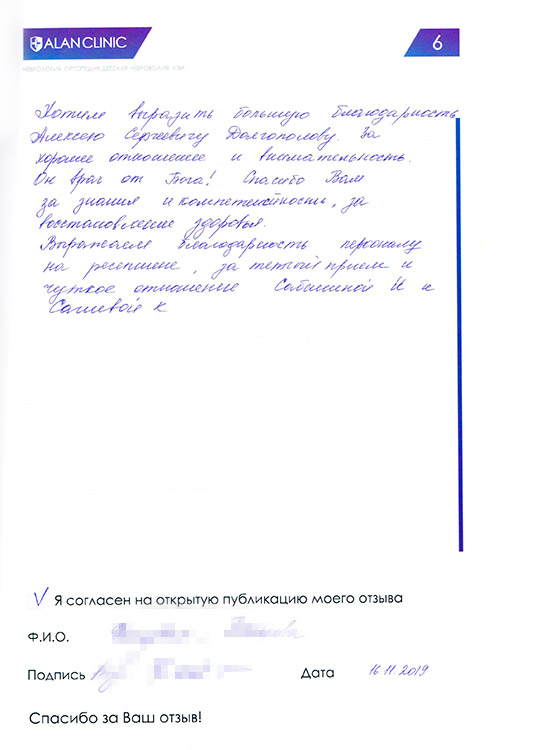 ALAN CLINIC
6
НЕВРОЛОГИЯ. ОРТОПЕДИЯ. ДЕТСКАЯ НЕВРОЛОГИЯ. УЗИ.
Хотим выразить большую благодарность
Алексею Сергеевичу Долгополову. За
хорошее отношение и внимательность.
Он врач от Бога! Спасибо Вам
за знания и компетентности, за
восстановление здоровья.
Выражаем благодарность персоналу
на ресепшене, за теплый прием и
чуткое отношение Сабининой И и
К
V Я согласен на открытую публикацию моего отзыва
Ф.И.О.
Подпись Дата 16.11.2019
Спасибо за Ваш отзыв!